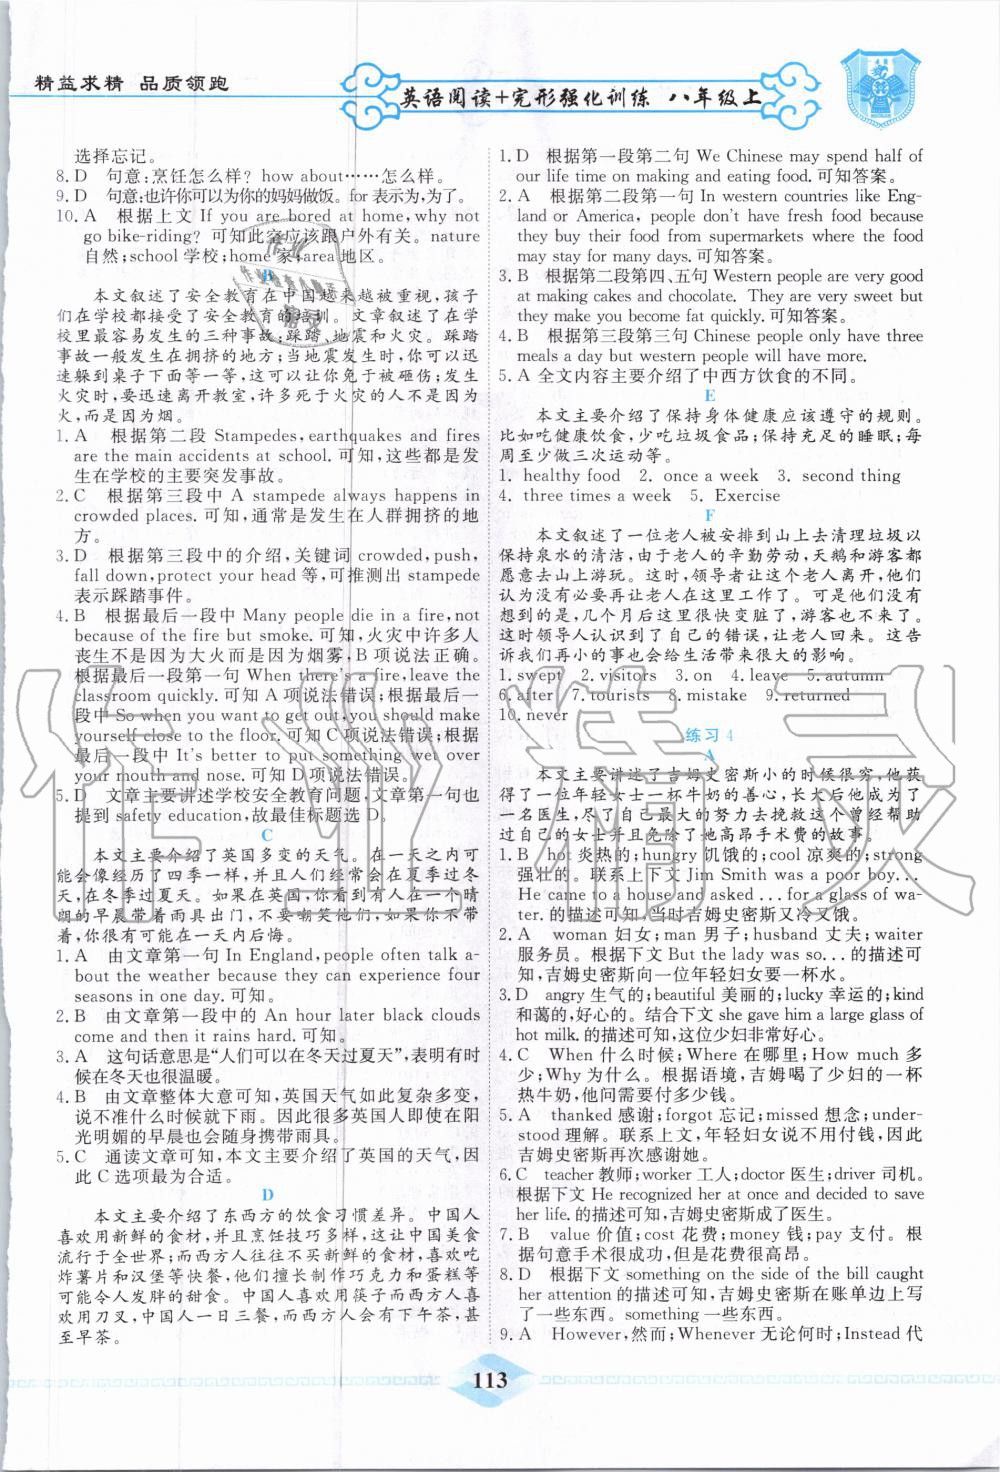 精益求精 品质领跑
英语阅读+完形强化训练 八年级上
选择忘记。
8. D 句意:烹饪怎么样? how about……怎么样。
9. D 句意:也许你可以为你的妈妈做饭。for 表示为,为了。
10. A 根据上文 If you are bored at home, why not
go bike-riding? 可知此空应该跟户外有关。nature
自然;school 学校;home 家;area 地区。
B
本文叙述了安全教育在中国越来越被重视,孩子
们在学校都接受了安全教育的培训。文章叙述了在学
校里最容易发生的三种事故:踩踏、地震和火灾。踩踏
事故一般发生在拥挤的地方;当地震发生时,你可以迅
速躲到桌子下面等一等,这可以让你免于被砸伤;发生
火灾时,要迅速离开教室,许多死于火灾的人不是因为
火,而是因为烟。
1. A 根据第二段 Stampedes, earthquakes and fires
are the main accidents at school. 可知,这些都是发
生在学校的主要突发事故。
2. C 根据第三段中 A stampede always happens in
crowded places. 可知,通常是发生在人群拥挤的地
方。
3. D 根据第三段中的介绍,关键词 crowded, push,
fall down, protect your head 等,可推测出 stampede
表示踩踏事件。
4. B 根据最后一段中 Many people die in a fire, not
because of the fire but smoke. 可知,火灾中许多人
丧生不是因为大火而是因为烟雾,B 项说法正确。
根据最后一段第一句 When there's a fire, leave the
classroom quickly. 可知 A 项说法错误;根据最后一
段中 So when you want to get out, you should make
yourself close to the floor. 可知 C 项说法错误;根据
最后一段中 It's better to put something wet over
your mouth and nose. 可知 D 项说法错误。
5. D 文章主要讲述学校安全教育问题,文章第一句也
提到 safety education,故最佳标题选 D。
C
本文主要介绍了英国多变的天气。在一天之内可
能会像经历了四季一样,并且人们经常会在夏季过冬
天,在冬季过夏天。如果在英国,你看到有人在一个晴
朗的早晨带着雨具出门,不要嘲笑他们,如果你不带
着,你很有可能在一天内后悔。
1. A 由文章第一句 In England, people often talk a-
bout the weather because they can experience four
seasons in one day. 可知。
2. B 由文章第一段中的 An hour later black clouds
come and then it rains hard. 可知。
3. A 这句话意思是“人们可以在冬天过夏天”,表明有时
候在冬天也很温暖。
4. B 由文章整体大意可知,英国天气如此复杂多变,
说不准什么时候就下雨。因此很多英国人即使在阳
光明媚的早晨也会随身携带雨具。
5. C 通读文章可知,本文主要介绍了英国的天气,因
此 C 选项最为合适。
D
本文主要介绍了东西方的饮食习惯差异。中国人
喜欢用新鲜的食材,并且烹饪技巧多样,这让中国美食
流行于全世界;而西方人往往不买新鲜的食材,喜欢吃
炸薯片和汉堡等快餐,他们擅长制作巧克力和蛋糕等
可能令人发胖的甜食。中国人喜欢用筷子而西方人喜
欢用刀叉,中国人一日三餐,而西方人会有下午茶,甚
至早茶。
1. D 根据第一段第二句 We Chinese may spend half of
our life time on making and eating food. 可知答案。
2. A 根据第二段第一句 In western countries like Eng-
land or America, people don't have fresh food because
they buy their food from supermarkets where the food
may stay for many days. 可知答案。
3. B 根据第二段第四、五句 Western people are very good
at making cakes and chocolate. They are very sweet but
they make you become fat quickly. 可知答案。
4. B 根据第三段第三句 Chinese people only have three
meals a day but western people will have more.
5. A 全文内容主要介绍了中西方饮食的不同。
E
本文主要介绍了保持身体健康应该遵守的规则。
比如吃健康饮食,少吃垃圾食品;保持充足的睡眠;每
周至少做三次运动等。
1. healthy food 2. once a week 3. second thing
4. three times a week 5. Exercise
F
本文叙述了一位老人被安排到山上去清理垃圾以
保持泉水的清洁,由于老人的辛勤劳动,天鹅和游客都
愿意去山上游玩。这时,领导者让这个老人离开,他们
认为没有必要再让他在这里工作了。他们没有
想到的是,几个月后这里很快变脏了,游客也不来了。
这时领导人认识到了自己的错误,让老人回来。这告
诉我们再小的事也会给生活带来很大的影响。
1. swept 2. visitors 3. on 4. leave 5. autumn
6. after 7. tourists 8. mistake 9. returned
10. never
练习 4
A
本文主要讲述了吉姆史密斯小的时候很穷,他获
得了一位年轻女士一杯牛奶的善心,长大后他成为了
一名医生,尽了自己最大的努力去挽救这个曾经帮助
过自己的女士并且免除了她高昂手术费的故事。
1. B hot 炎热的;hungry 饥饿的;cool 凉爽的;strong
强壮的。联系上下文 Jim Smith was a poor boy...
He came to a house and asked ... for a glass of wa-
ter. 的描述可知,当时吉姆史密斯又冷又饿。
2. A woman 妇女;man 男子;husband 丈夫;waiter
服务员。根据下文 But the lady was so... 的描述可
知,吉姆史密斯向一位年轻妇女要一杯水。
3. D angry 生气的;beautiful 美丽的;lucky 幸运的;kind
和蔼的,好心的。结合下文 she gave him a large glass of
hot milk. 的描述可知,这位少妇非常好心。
4. C When 什么时候;Where 在哪里;How much 多
少;Why 为什么。根据语境,吉姆史密斯喝了一杯
热牛奶,他问需要付多少钱。
5. A thanked 感谢;forgot 忘记;missed 想念;under-
stood 理解。联系上文,年轻妇女说不用付钱,因此
吉姆史密斯再次感谢她。
6. C teacher 教师;worker 工人;doctor 医生;driver 司机。
根据下文 He recognized her at once and decided to save
her life. 的描述可知,吉姆史密斯成了医生。
7. B value 价值;cost 花费;money 钱;pay 支付。根
据句意手术很成功,但是花费很高昂。
8. D 根据下文 something on the side of the bill caught
her attention 的描述可知,吉姆史密斯在账单边上写
了一些东西。something 一些东西。
9. A However,然而;Whenever 无论何时;Instead 代
113
作业精灵